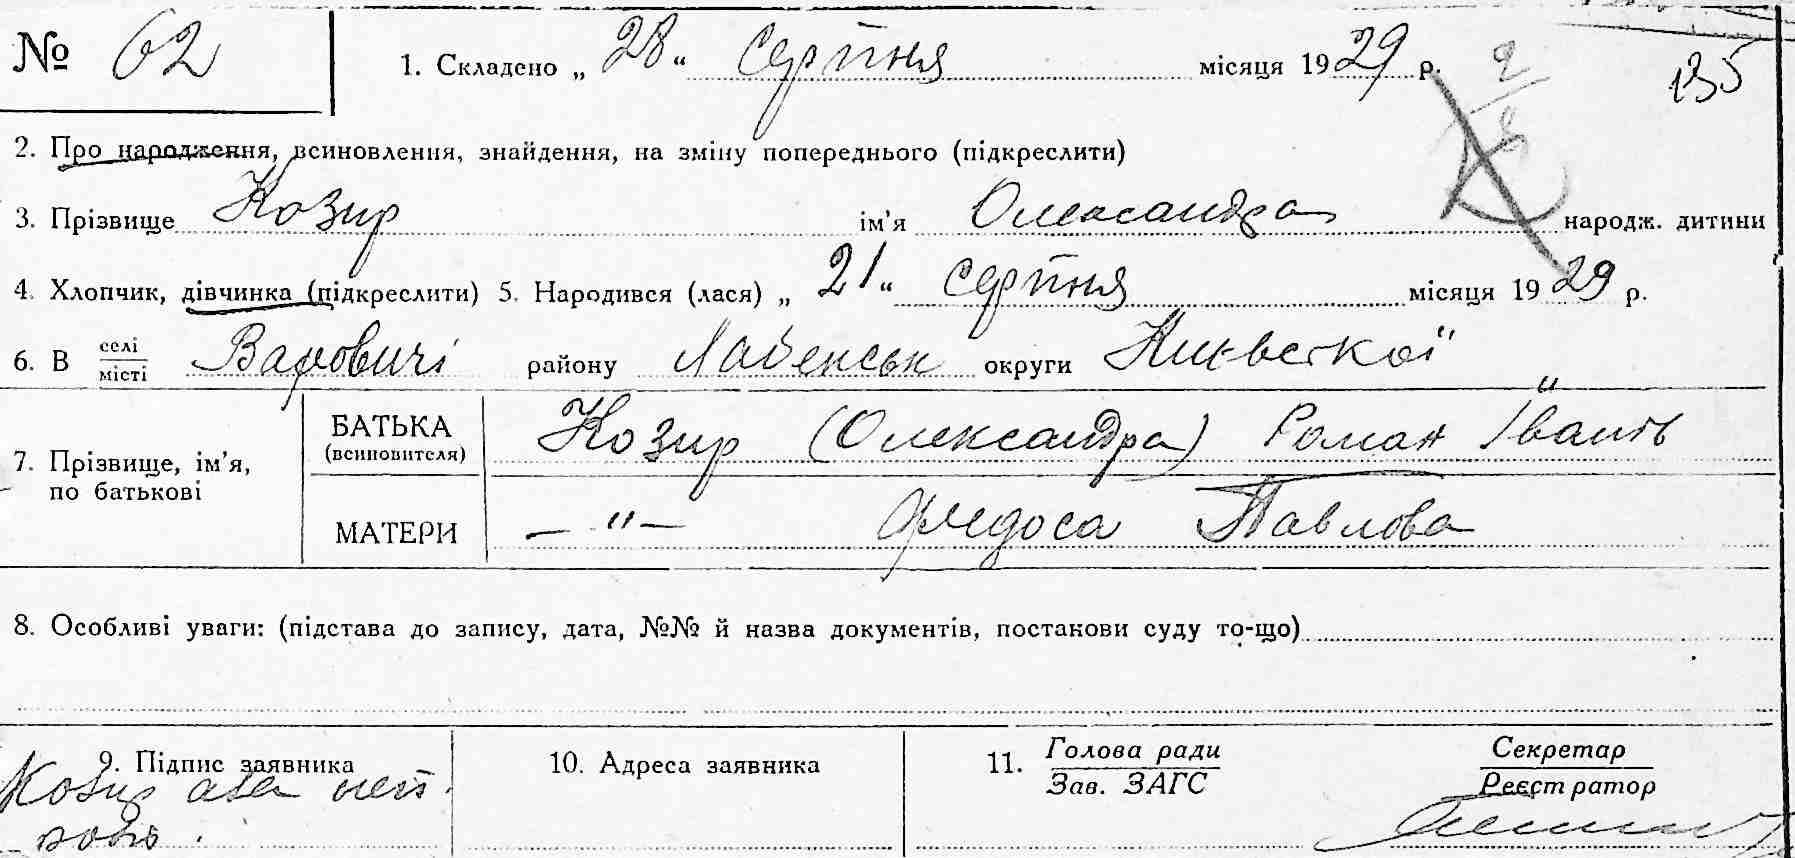 № 62 1. Складено „ 28 “ Серпня місяця 1929 р. 135
2. Про народження, всиновлення, знайдення, на зміну попереднього (підкреслити)
3. Прізвище Козир ім’я Олександра народж. дитини
4. Хлопчик, дівчинка (підкреслити) 5. Народився (лася) „ 21 “ серпня місяця 1929 р.
6. В селі/місті Варовичі району округи Київської
7. Прізвище, ім’я, по батькові
БАТЬКА (всиновителя) Козир (Олександра) Роман
МАТЕРИ — " — Федоса Павлова
8. Особливі уваги: (підстава до запису, дата, №№ й назва документів, постанови суду то-що)
9. Підпис заявника
Козир
10. Адреса заявника
11. Голова ради / Зав. ЗАГС
Секретар / Реєстратор